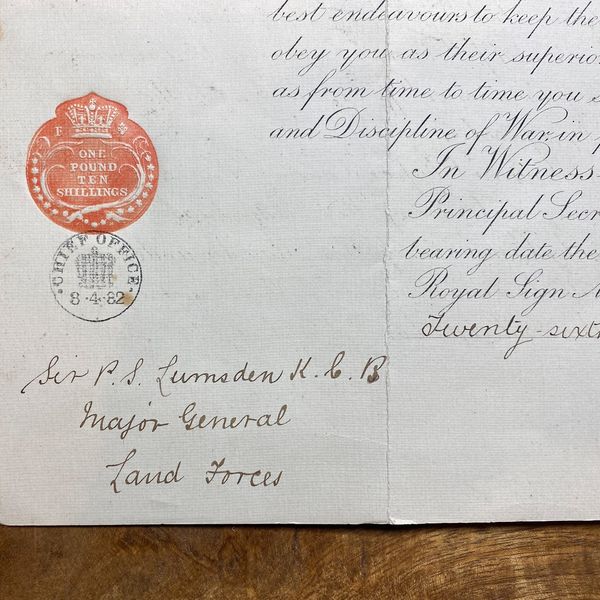 best endeavours to keep the
obey you as their superior
as from time to time you
and Discipline of War, in
In Witness
Principal Secr
bearing date the
Royal Sign
Twenty-sixth
F
ONE
POUND
TEN
SHILLINGS
CHIEF OFFICE
8·4·82
Sir P. S. Lumsden K. C. B
Major General
Land Forces